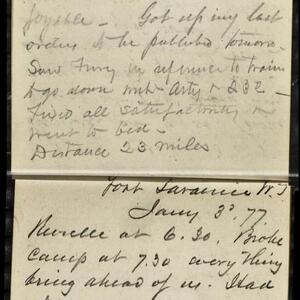 joyable - Got up my last
orders to be published tomorrow
Saw Furey in reference to train
to go down with Arty & 23d -
Fixed all satisfactorily &
went to bed -
Distance 23 miles
Fort Laramie W.T
Jany 3d 77.
Reveille at 6.30. Broke
camp at 7.30 everything
being ahead of us. Had